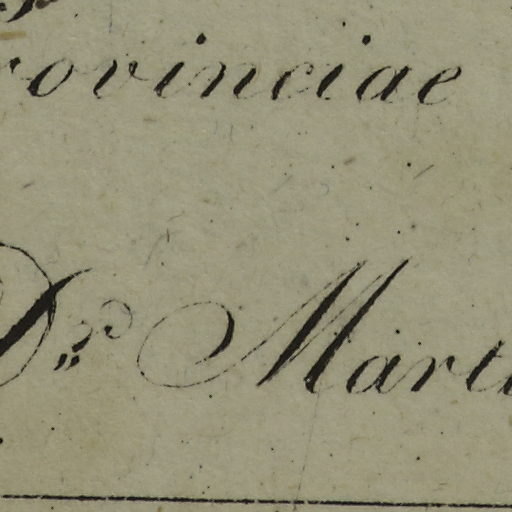 rovinciae
Dr. Mart